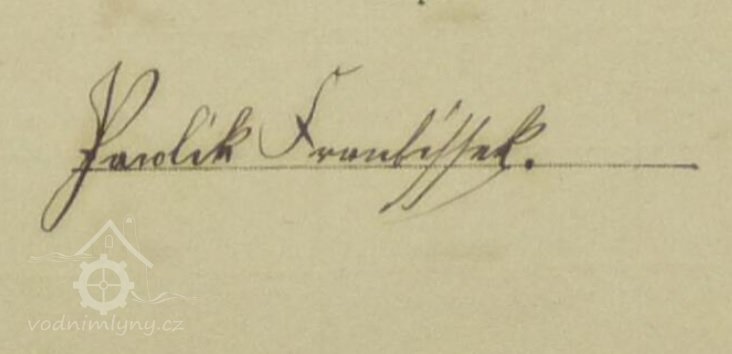 Pawlik Frantissek.
vodnimlyny.cz